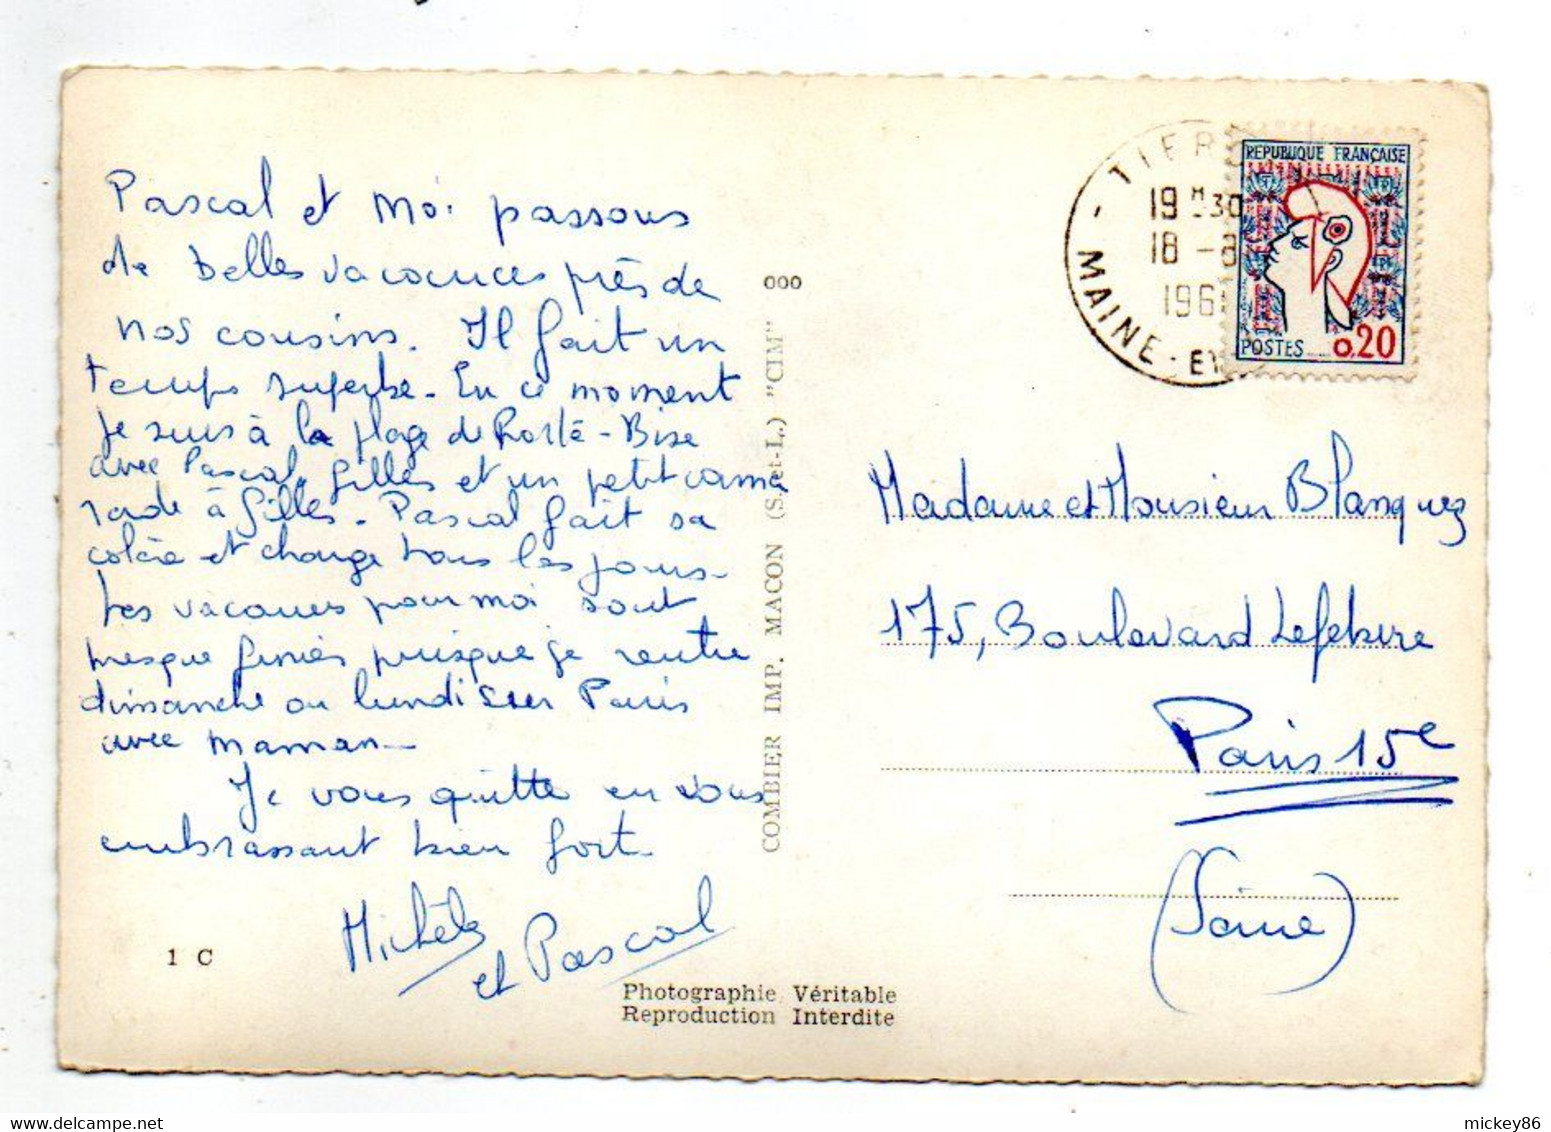 Pascal et moi passons
de belles vacances près de
nos cousins. Il fait un
temps superbe - En ce moment
je suis à la plage de Porte-Bise
avec Pascal, Gilles et un petit cama
rade à Gilles. Pascal fait sa
colère et change tous les jours -
Les vacances pour moi sont
presque finies puisque je rentre
dimanche ou lundi sur Paris
avec maman -
Je vous quitte en vous
embrassant bien fort -
Michèle
et Pascal
1 C
Photographie Véritable
Reproduction Interdite
COMBIER IMP. MACON (S.-et-L.) "CIM"
ooo
- TIER
19 H -30
18 - 8
196
MAINE - ET
REPUBLIQUE FRANÇAISE
POSTES 0,20
Madame et Monsieur Blanquez
175, Boulevard Lefebvre
Paris 15e
(Seine)
mickey86